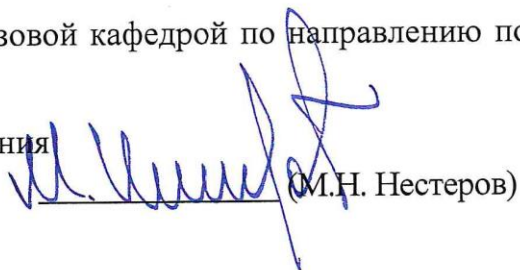 зовой кафедрой по направлению по
ния
(М.Н. Нестеров)